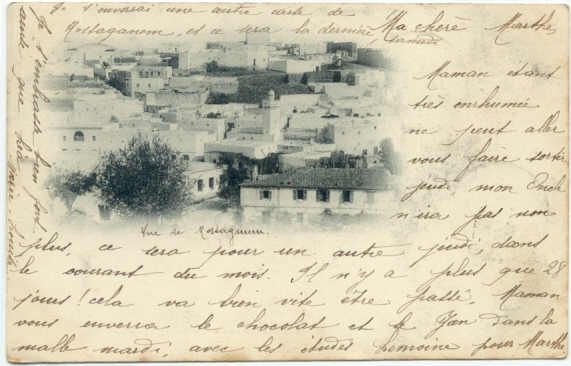 Je t'enverrai une autre carte de
Mostaganem, et ce sera la dernière,
samedi
Ma chère Marthe,
Maman étant
très enrhumée
ne peut aller
vous faire sortir
jeudi mon Oncle
n'ira pas non
plus, ce sera pour un autre jeudi, dans
le courant du mois. Il n'y a plus que 28
jours! cela va bien vite être passé. Maman
vous enverra le chocolat et le dans la
malle mardi, avec les études Lemoine pour Marthe
Vue de Mostaganem.
Je t'embrasse bien fort